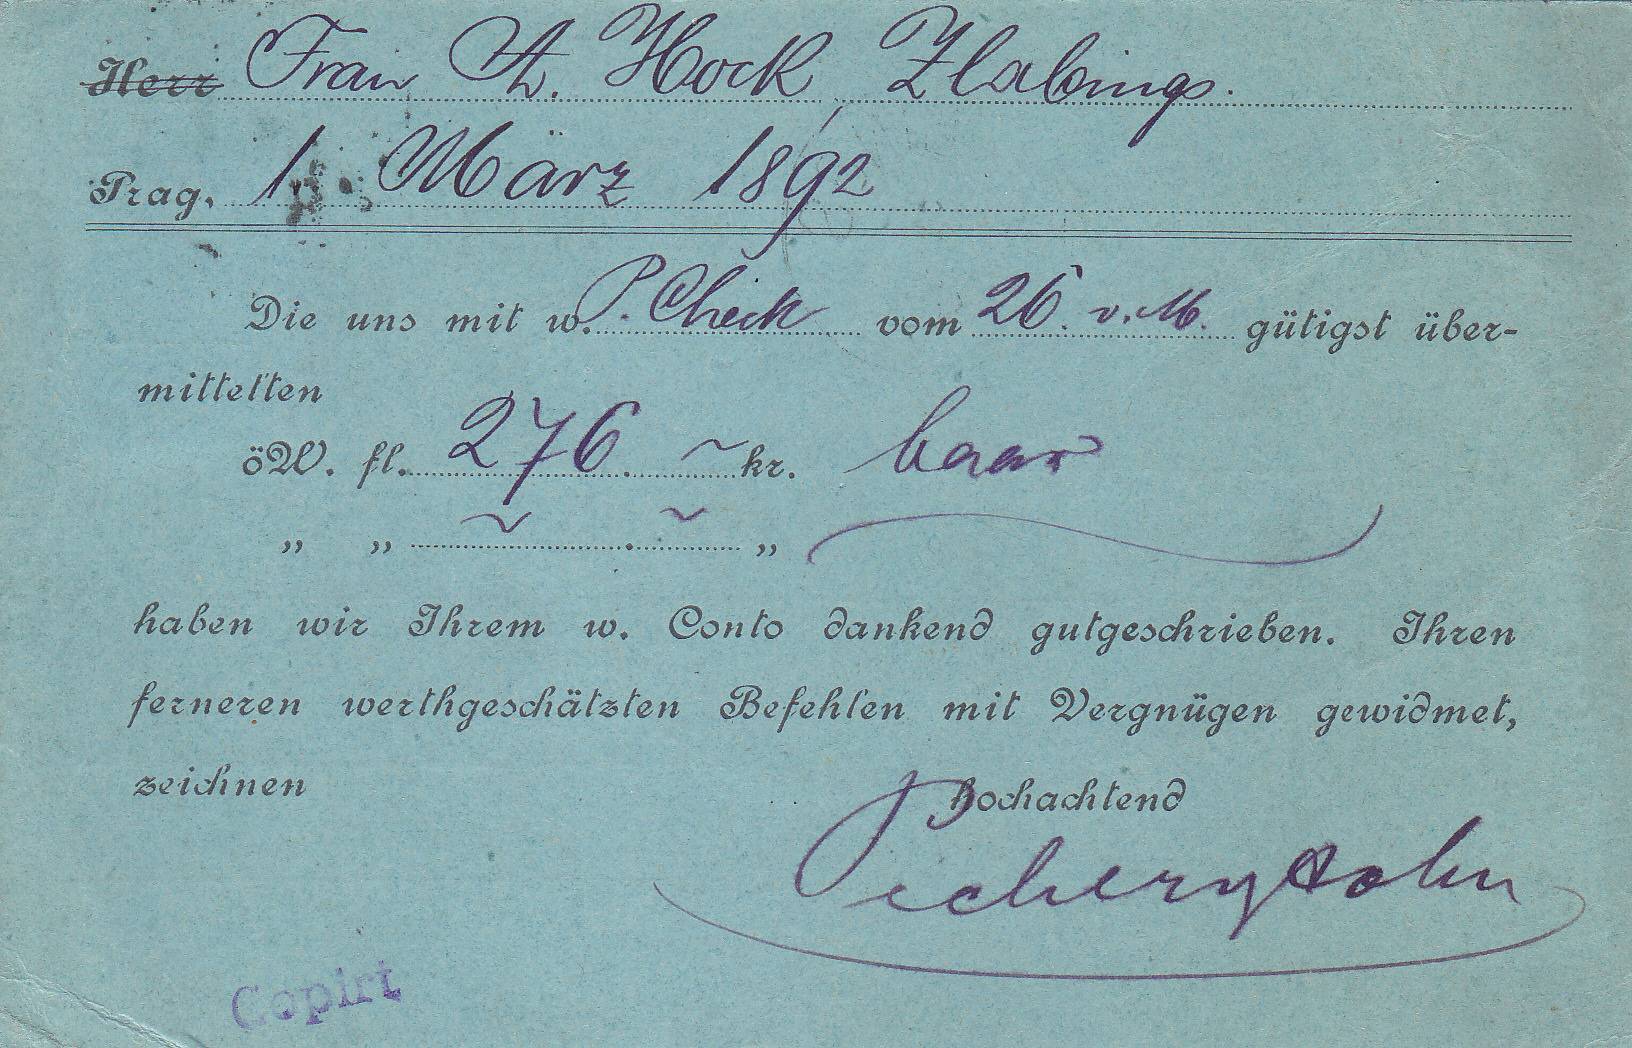 Herr Frau A. Hock, Zlabings.
Prag, 1. März 1892
Die uns mit w. P. Check vom 26. v. M. gütigst über-
mittelten
öW. fl. 276. ~ kr. baar
„ „ ~ . ~ „
haben wir Ihrem w. Conto dankend gutgeschrieben. Ihren
ferneren werthgeschätzten Befehlen mit Vergnügen gewidmet,
zeichnen hochachtend
Copirt